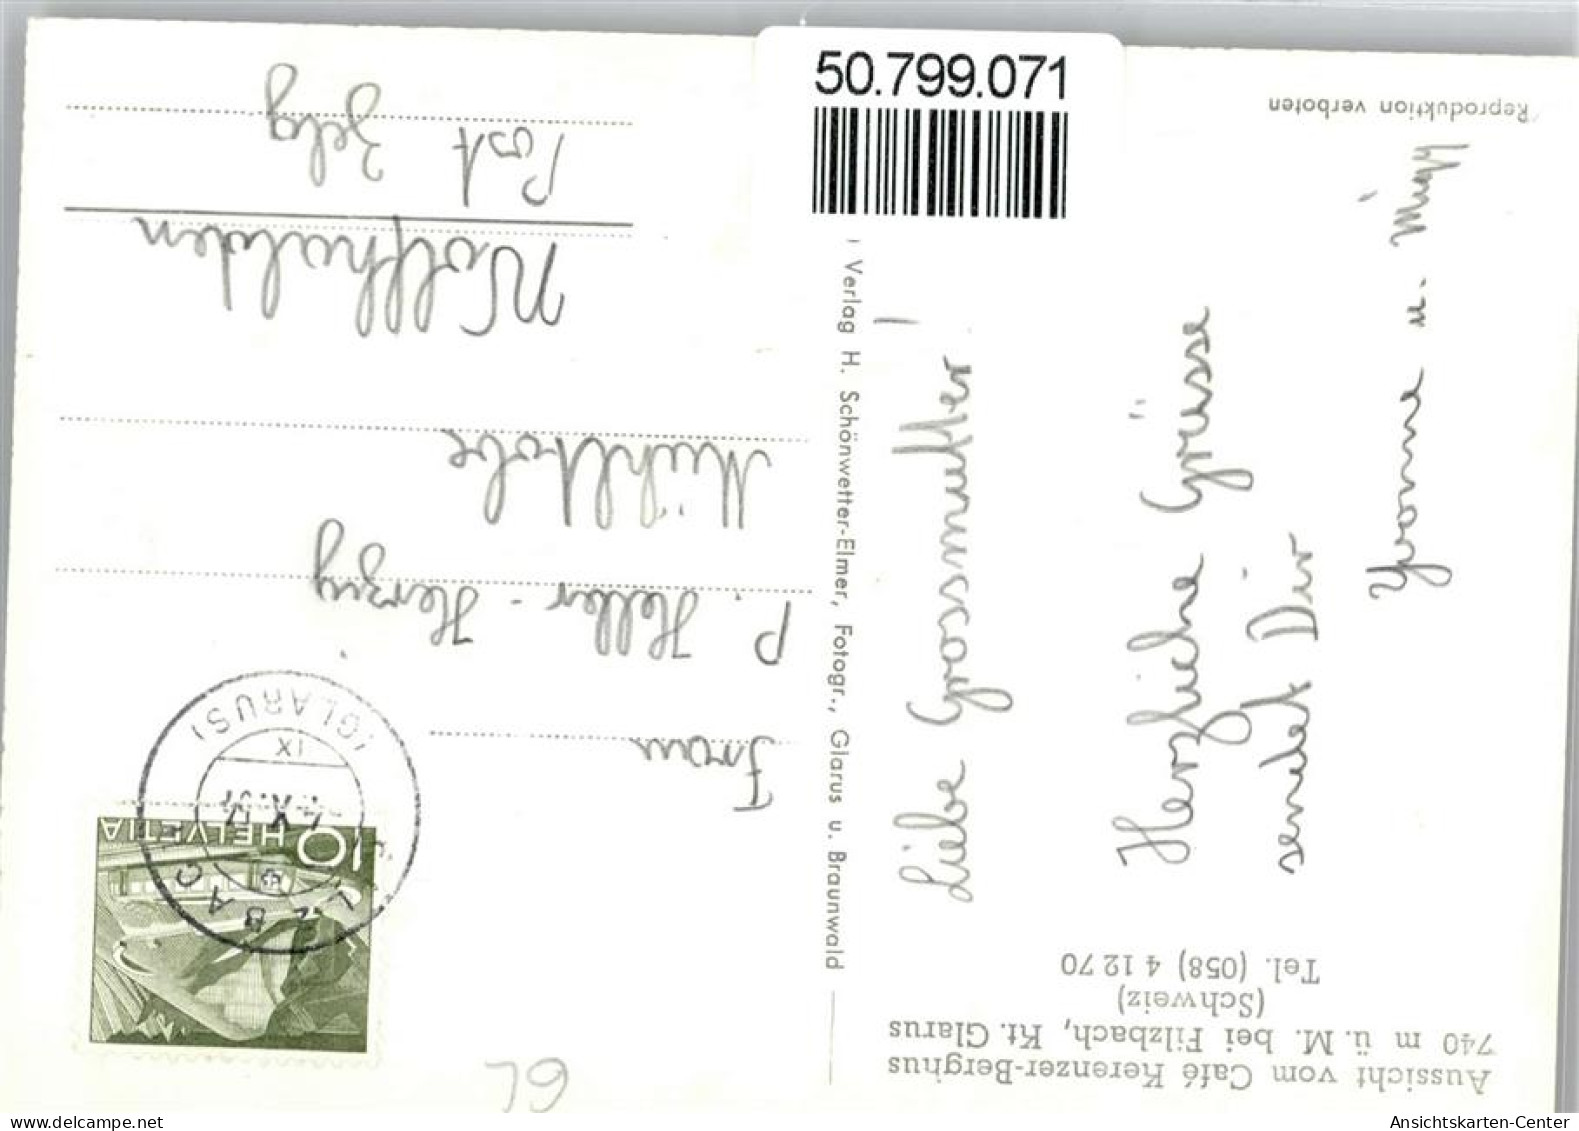 50.799.071
Aussicht vom Café Kerenzer-Berghus
740 m ü. M. bei Filzbach, Kt. Glarus
(Schweiz)
Tel. (058) 4 12 70
Liebe Grossmutter!
Herzliche Grüsse
sendet Dir
Yvonne u.
Reproduktion verboten
Verlag H. Schönwetter-Elmer, Fotogr., Glarus u. Braunwald
10 HELVETIA
(GLARUS)
IX
Frau
P. Heller - Herzig
Mühltobel
Wolfhalden
Post Zelg
GL
Ansichtskarten-Center